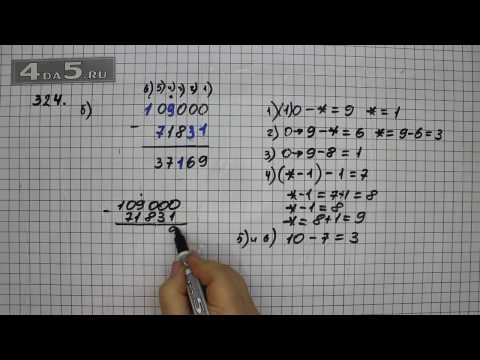 4DA5.RU
324.
б)
6) 5) 4) 3) 2) 1)
109000
-
71831
37169
1) (1)0 - * = 9 * = 1
2) 0→9 - * = 6 * = 9 - 6 = 3
3) 0→9 - 8 = 1
4) (* - 1) - 1 = 7
* - 1 = 7 + 1 = 8
* - 1 = 8
* = 8 + 1 = 9
5) и 6) 10 - 7 = 3
109000
-
71831
9